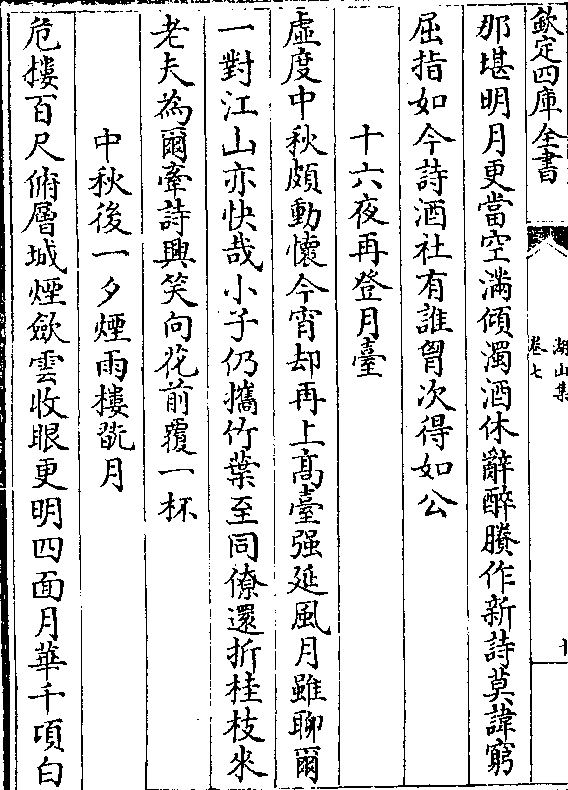 欽定四庫全書
湖山集
卷七
那堪明月更當空滿傾濁酒休辭醉賸作新詩莫諱窮
屈指如今詩酒社有誰胷次得如公
十六夜再登月臺
虛度中秋頗動懷今宵却再上髙臺强延風月雖聊爾
一對江山亦快哉小子仍攜竹葉至同僚還折桂枝來
老夫為爾牽詩興笑向花前覆一杯
中秋後一夕煙雨樓翫月
危樓百尺俯層城煙歛雲收眼更明四面月華千項白